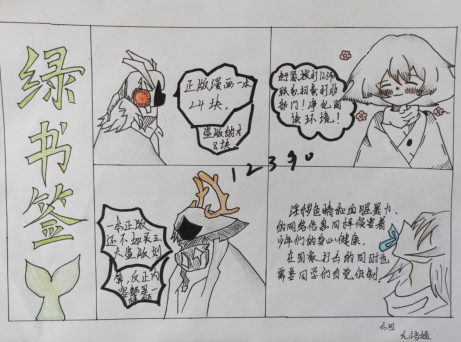 绿
书
签
正版漫画一本
24块。
盗版的才
8块。
赶紧拨打12390
联系扫黄打非
部门!净化阅
读环境!
12390
一本正版
还不如买三
本盗版划
算,反正内
容都是
淫秽色情和血腥暴力
的网络信息同样侵害青
少年们的身心健康。
在国家打击的同时也
需要同学们自觉抵制